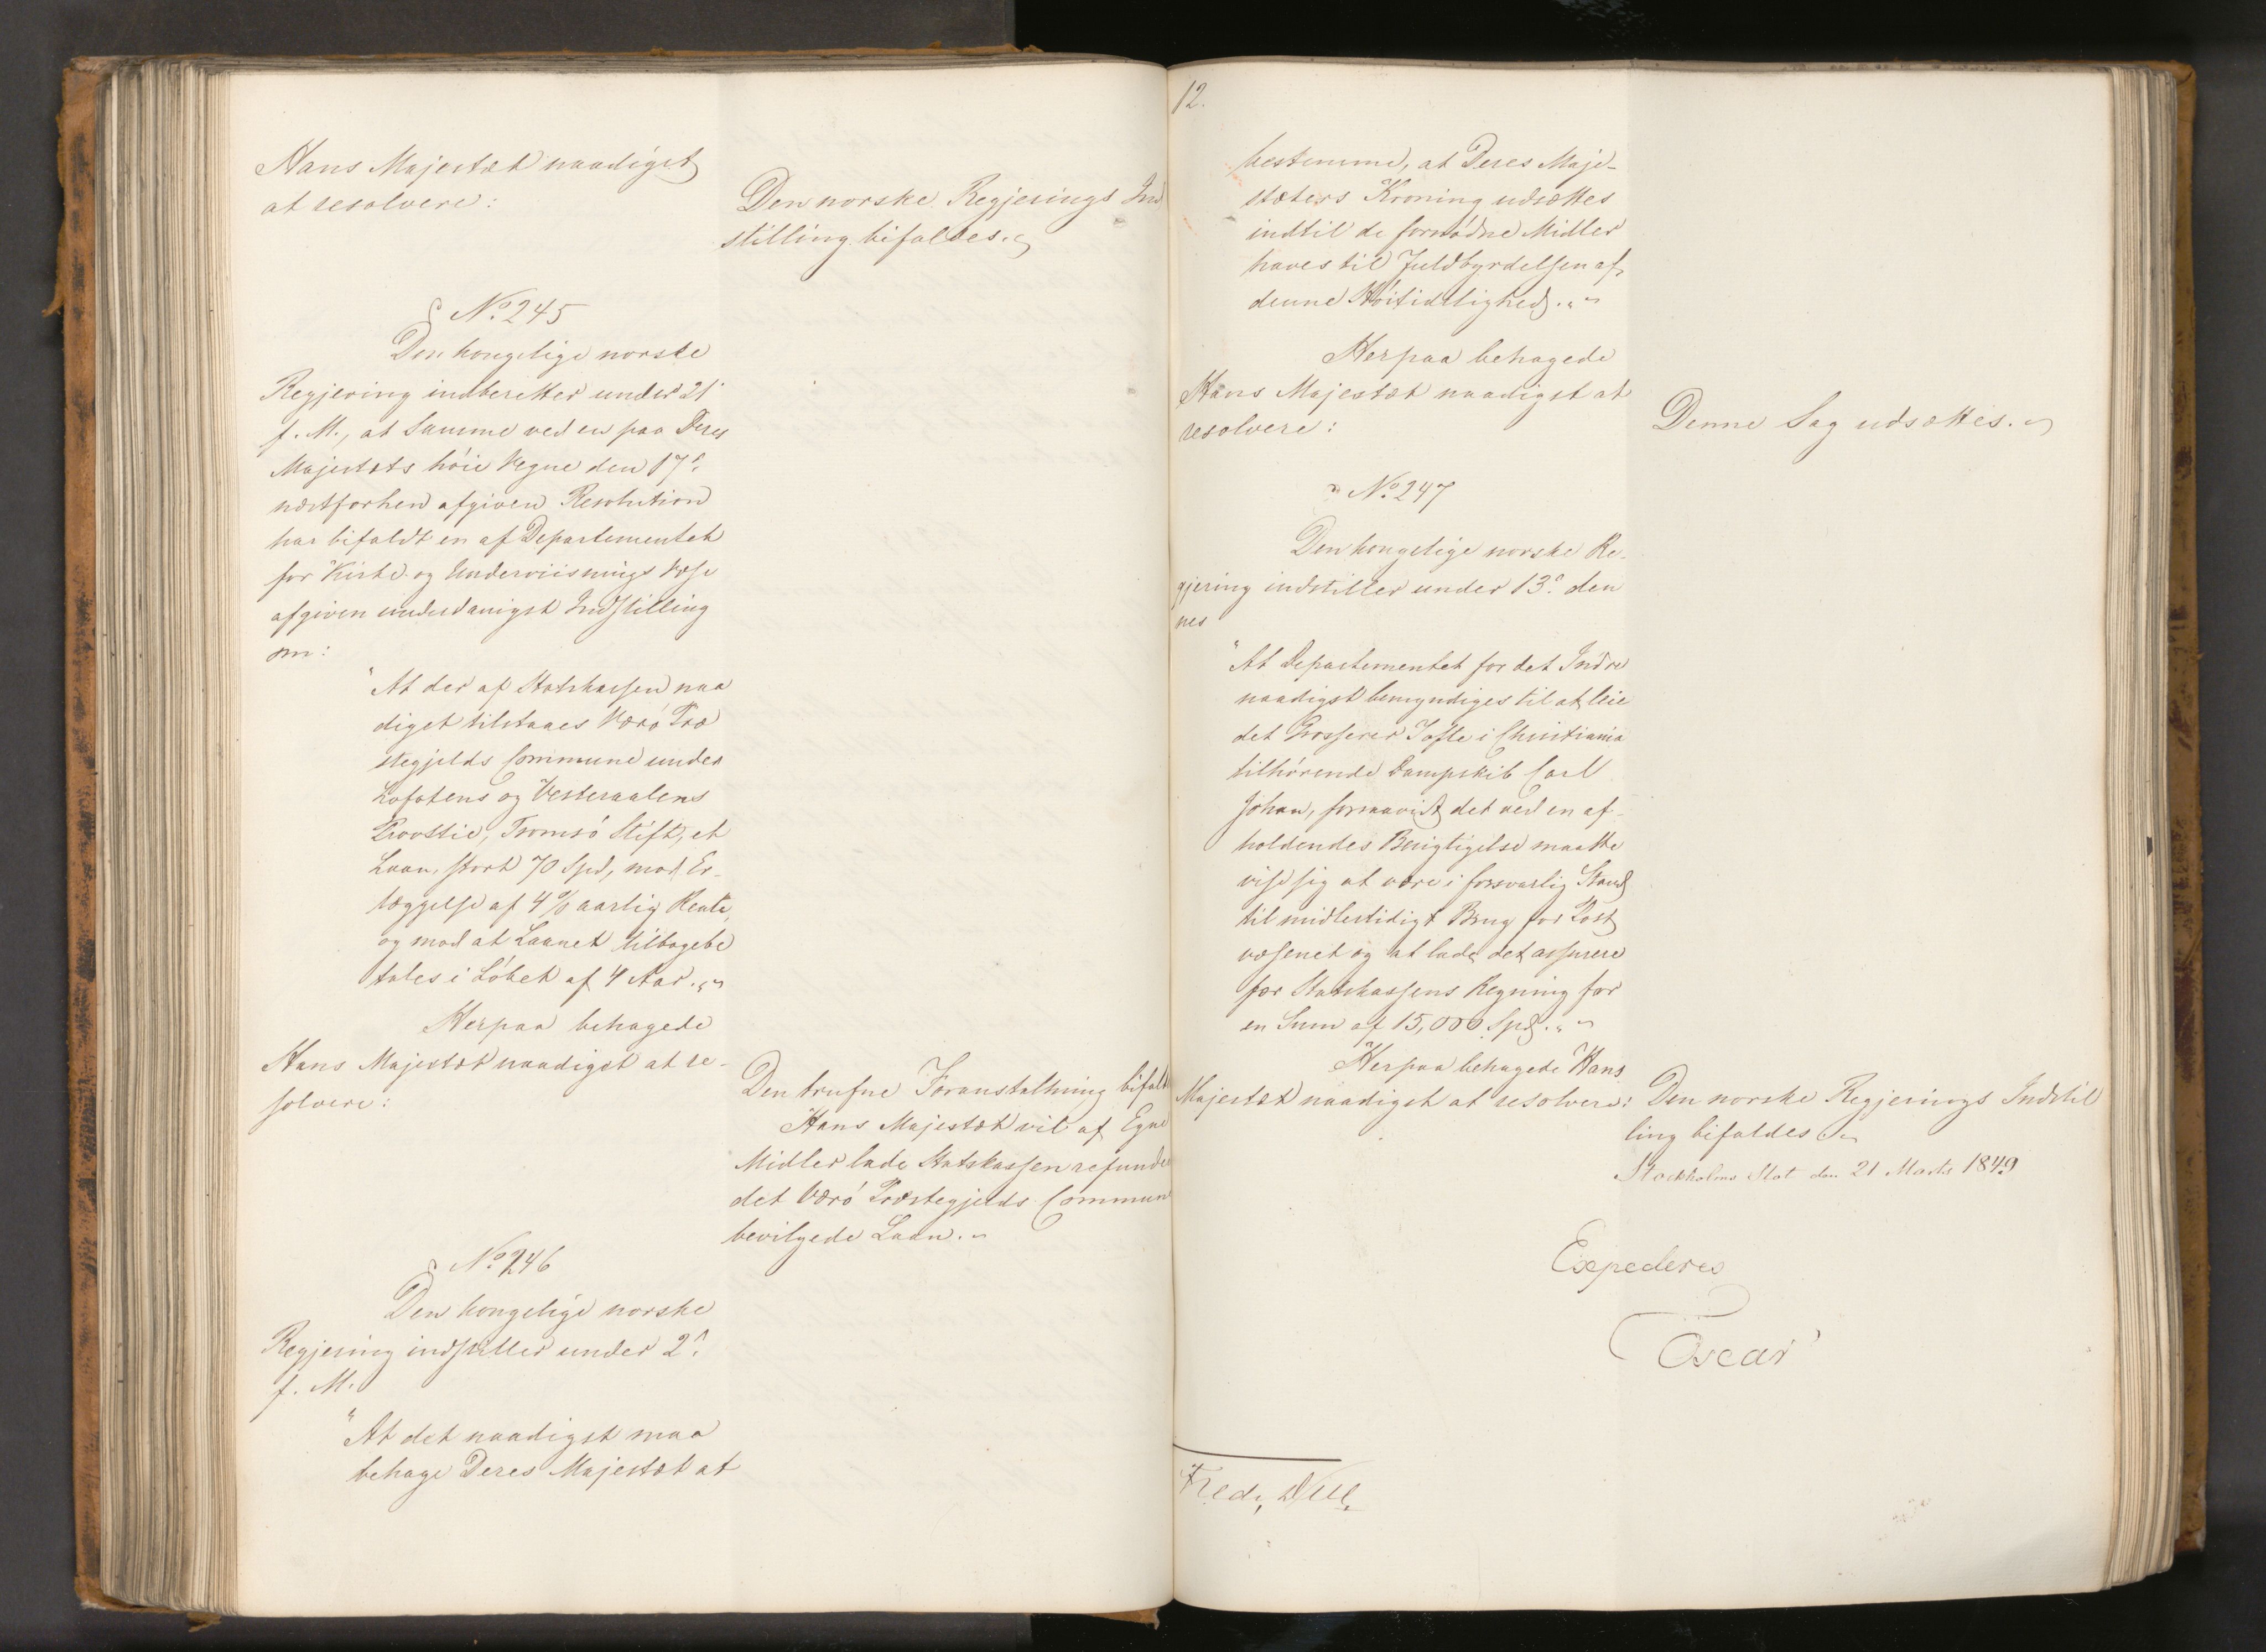 Hans Majestæt naadigst
at resolvere:
Den norske Regjerings Ind
stilling bifaldes.
No 245
Den kongelige norske
Regjering indberetter under 21'
f. M., at Samme ved en paa Deres
Majestæts höie Vegne den 17d.
næstforhen afgiven Resolution
har bifaldt en af Departementet
for Kirke- og Underviisnings Væse
afgiven underdanigst Indstilling
om:
"At der af Statskassen naa
digst tilstaaes Værö Præ
stegjelds Commune under
Lofotens og Vesteraalens
Provstie, Tromsö Stift, et
Laan, stort 70 Spd, mod Er-
læggelse af 4 % aarlig Rente,
og mod at Laanet tilbagebe
tales i Löbet af 4 Aar."
Herpaa behagede
Hans Majestæt naadigst at re-
solvere:
Den trufne Foranstaltning bifald
Hans Majestæt vil af Egne
Midler lade Statskassen refunde
det Værö Præstegjelds Commun
bevilgede Laan.
No 246
Den kongelige norske
Regjering indstiller under 2d.
f. M.
"At det naadigst maa
behage Deres Majestæt at
12.
bestemme, at Deres Maje-
stæters Kroning udsættes
indtil de fornödne Midler
haves til Fuldbyrdelsen af
denne Höitidelighed."
Herpaa behagede
Hans Majestæt naadigst at
resolvere:
Denne Sag udsættes.
No 247
Den kongelige norske Re-
gjering indstiller under 13d. den
nes
"At Departementet for det Indre
naadigst bemyndiges til at leie
det Grosserer Tofte i Christiania
tilhörende Dampskib Carl
Johan, forsaavidt det ved en af-
holdendes Besigtigelse maatte
vise sig at være i forsvarlig Stand
til midlertidigt Brug for Post
væsenet og at lade det assurere
for Statskassens Regning for
en Sum af 15,000 Spd."
Herpaa behagede Hans
Majestæt naadigst at resolvere:
Den norske Regjerings Indstil
ling bifaldes
Stockholms Slot den 21 Marts 1849
Expederes
Oscar
Fred. Due